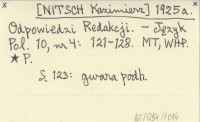 [NITSCH Kazimierz] 1925a.
Odpowiedzi Redakcji. – Język
Pol. 10, nr 4: 121–128. MT, WHP.
* P.
S. 123: gwara podh.